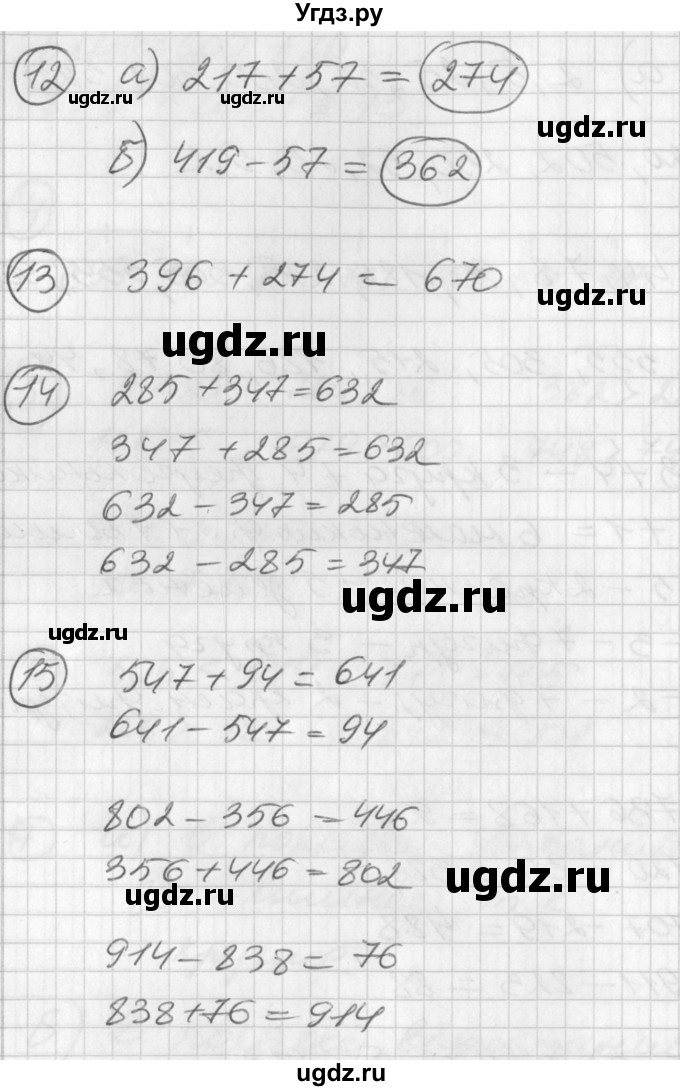 Угдз.ру
12 а) 217 + 57 = 274
ugdz.ru ugdz.ru
ugdz.ru
б) 419 - 57 = 362
13 396 + 274 = 670
ugdz.ru
ugdz.ru
14 285 + 347 = 632
347 + 285 = 632
632 - 347 = 285
632 - 285 = 347
ugdz.ru
ugdz.ru
15 547 + 94 = 641
641 - 547 = 94
802 - 356 = 446
356 + 446 = 802
ugdz.ru
ugdz.ru
914 - 838 = 76
838 + 76 = 914
ugdz.ru